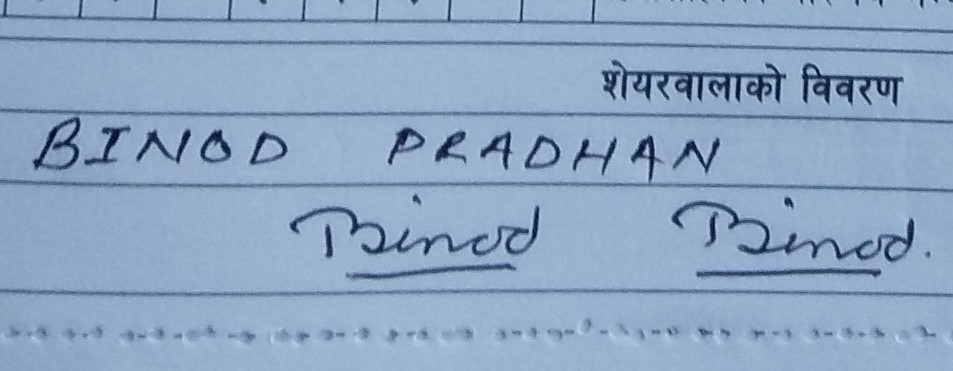 शेयरवालाको विवरण
BINOD PRADHAN
Binod Binod.